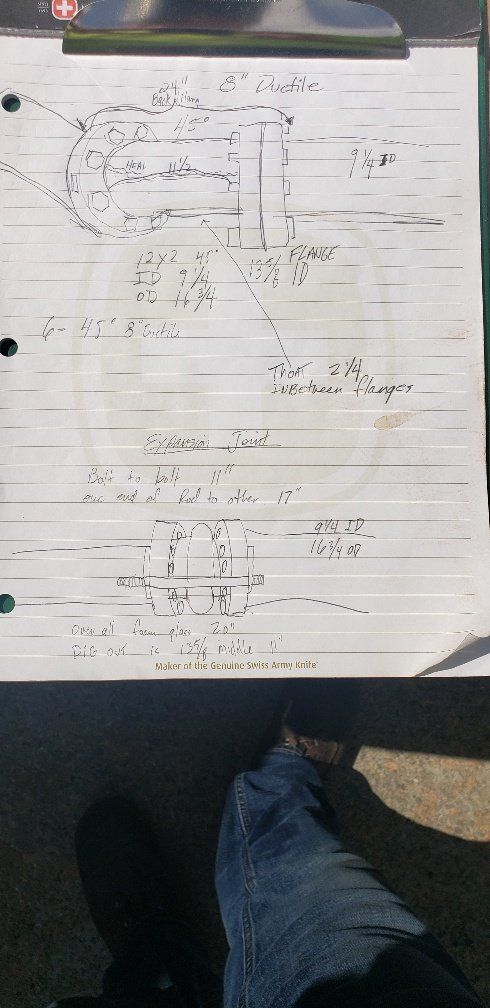 24"
8" Ductile
Back
45°
HEAL 11 1/2
9 1/4 ID
12x2 45°
FLANGE
ID 9 1/4
13 5/8 ID
OD 16 3/4
6- 45° 8" Ductile
2 1/4
INBetween flanges
Expansion Joint
Bolt to bolt 11"
end of Rod to other 17"
9 1/4 ID
16 3/4 OD
Over all 20"
is 13 5/8 middle 11"
Maker of the Genuine Swiss Army Knife